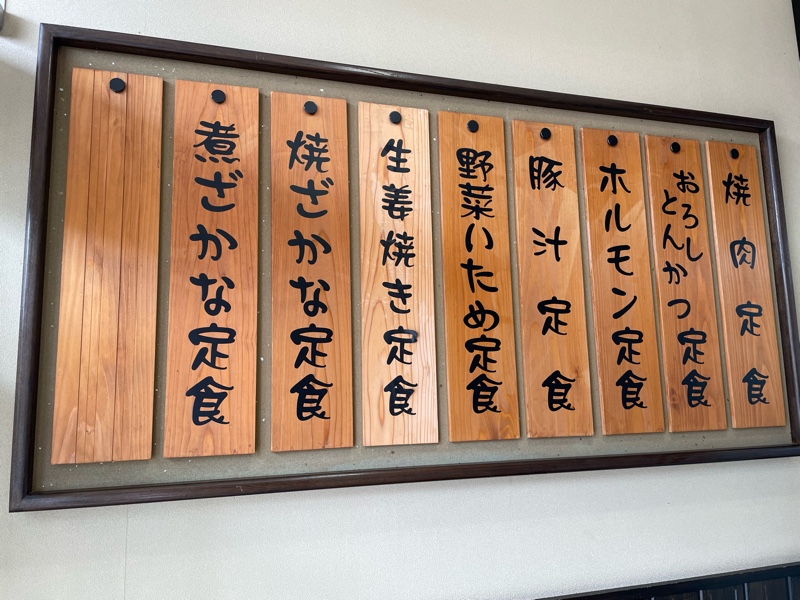 焼肉定食
おろし
とんかつ定食
ホルモン定食
豚汁定食
野菜いため定食
生姜焼き定食
焼ざかな定食
煮ざかな定食